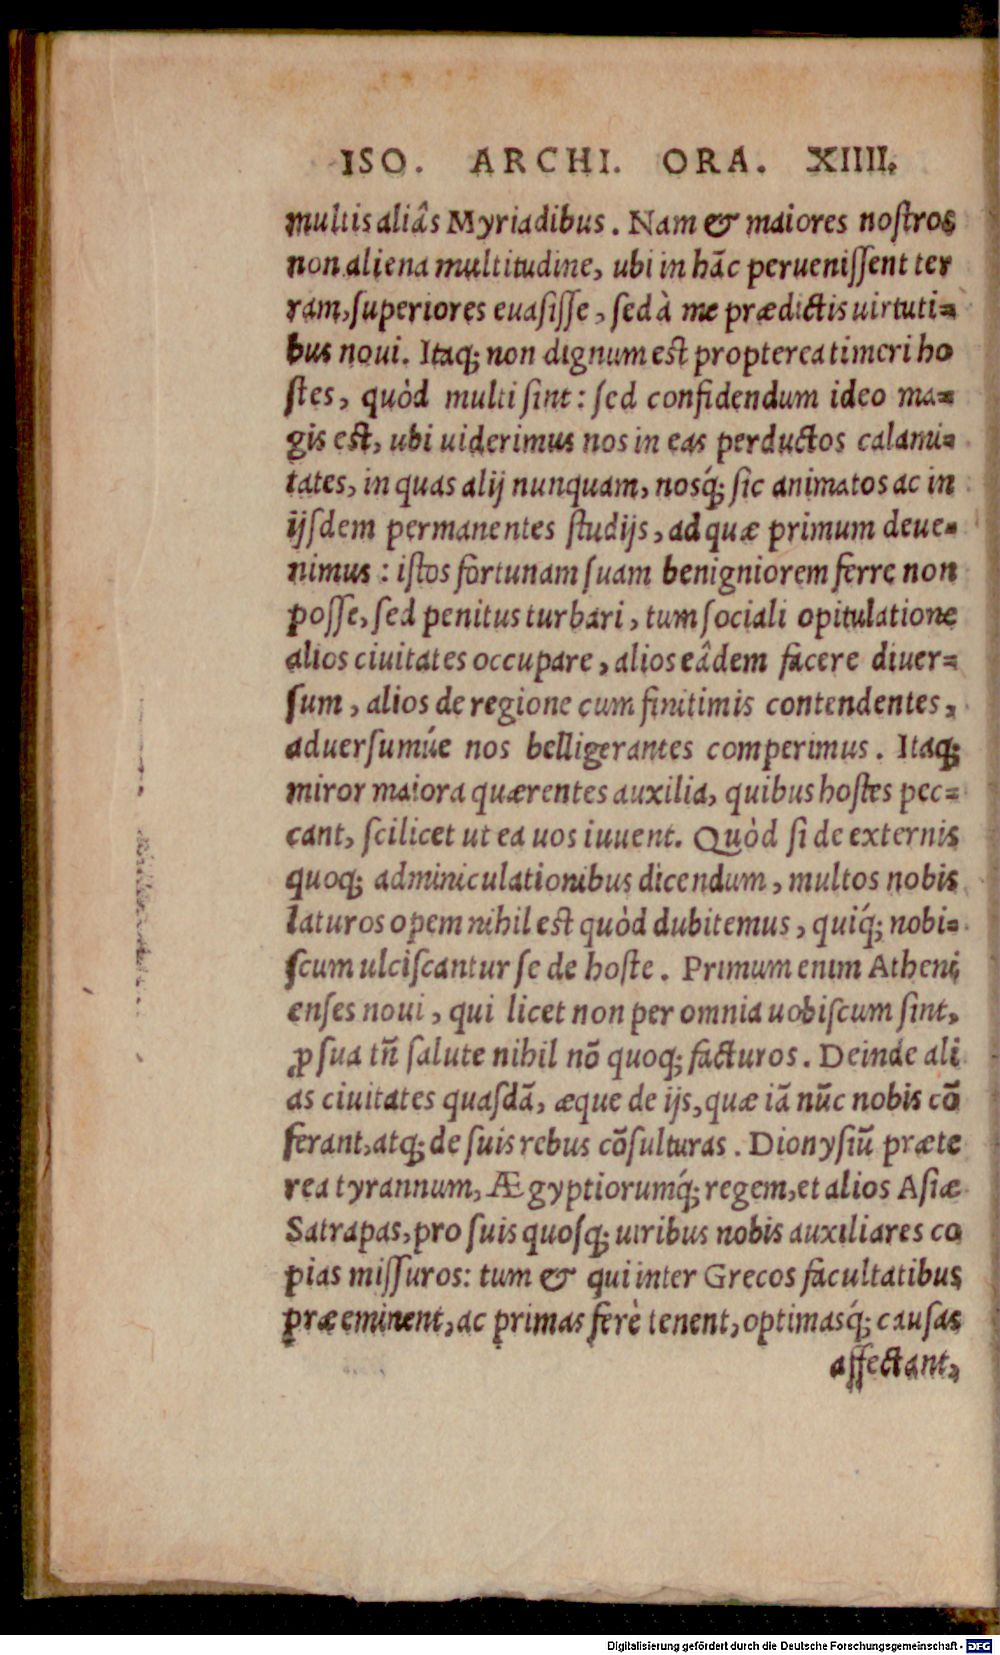 ISO. ARCHI. ORA. XIIII.
multis aliâs Myriadibus. Nam & maiores nostros
non aliena multitudine, ubi in hãc peruenissent ter
ram, superiores euasisse, sed à me prædictis uirtuti=
bus noui. Itaq; non dignum est propterea timeri ho
stes, quòd multi sint: sed confidendum ideo ma=
gis est, ubi uiderimus nos in eas perductos calami=
tates, in quas alij nunquam, nosq́; sic animatos ac in
ijsdem permanentes studijs, ad quæ primum deue=
nimus: istos fortunam suam benigniorem ferre non
posse, sed penitus turbari, tum sociali opitulatione
alios ciuitates occupare, alios eâdem facere diuer=
sum, alios de regione cum finitimis contendentes,
aduersumúe nos belligerantes comperimus. Itaq;
miror maiora quærentes auxilia, quibus hostes pec=
cant, scilicet ut ea uos iuuent. Quòd si de externis
quoq; adminiculationibus dicendum, multos nobis
laturos opem nihil est quòd dubitemus, quiq́; nobi=
scum ulciscantur se de hoste. Primum enim Atheni
enses noui, qui licet non per omnia uobiscum sint,
ꝓ sua tñ salute nihil nõ quoq; facturos. Deinde ali
as ciuitates quasdã, æque de ijs, quæ iã nũc nobis cõ
ferant, atq; de suis rebus cõsulturas. Dionysiũ præte
rea tyrannum, Ægyptiorumq́; regem, et alios Asiæ
Satrapas, pro suis quosq; uiribus nobis auxiliares co
pias missuros: tum & qui inter Grecos facultatibus
præeminent, ac primas ferè tenent, optimasq́; causas
affectant,
Digitalisierung gefördert durch die Deutsche Forschungsgemeinschaft - DFG